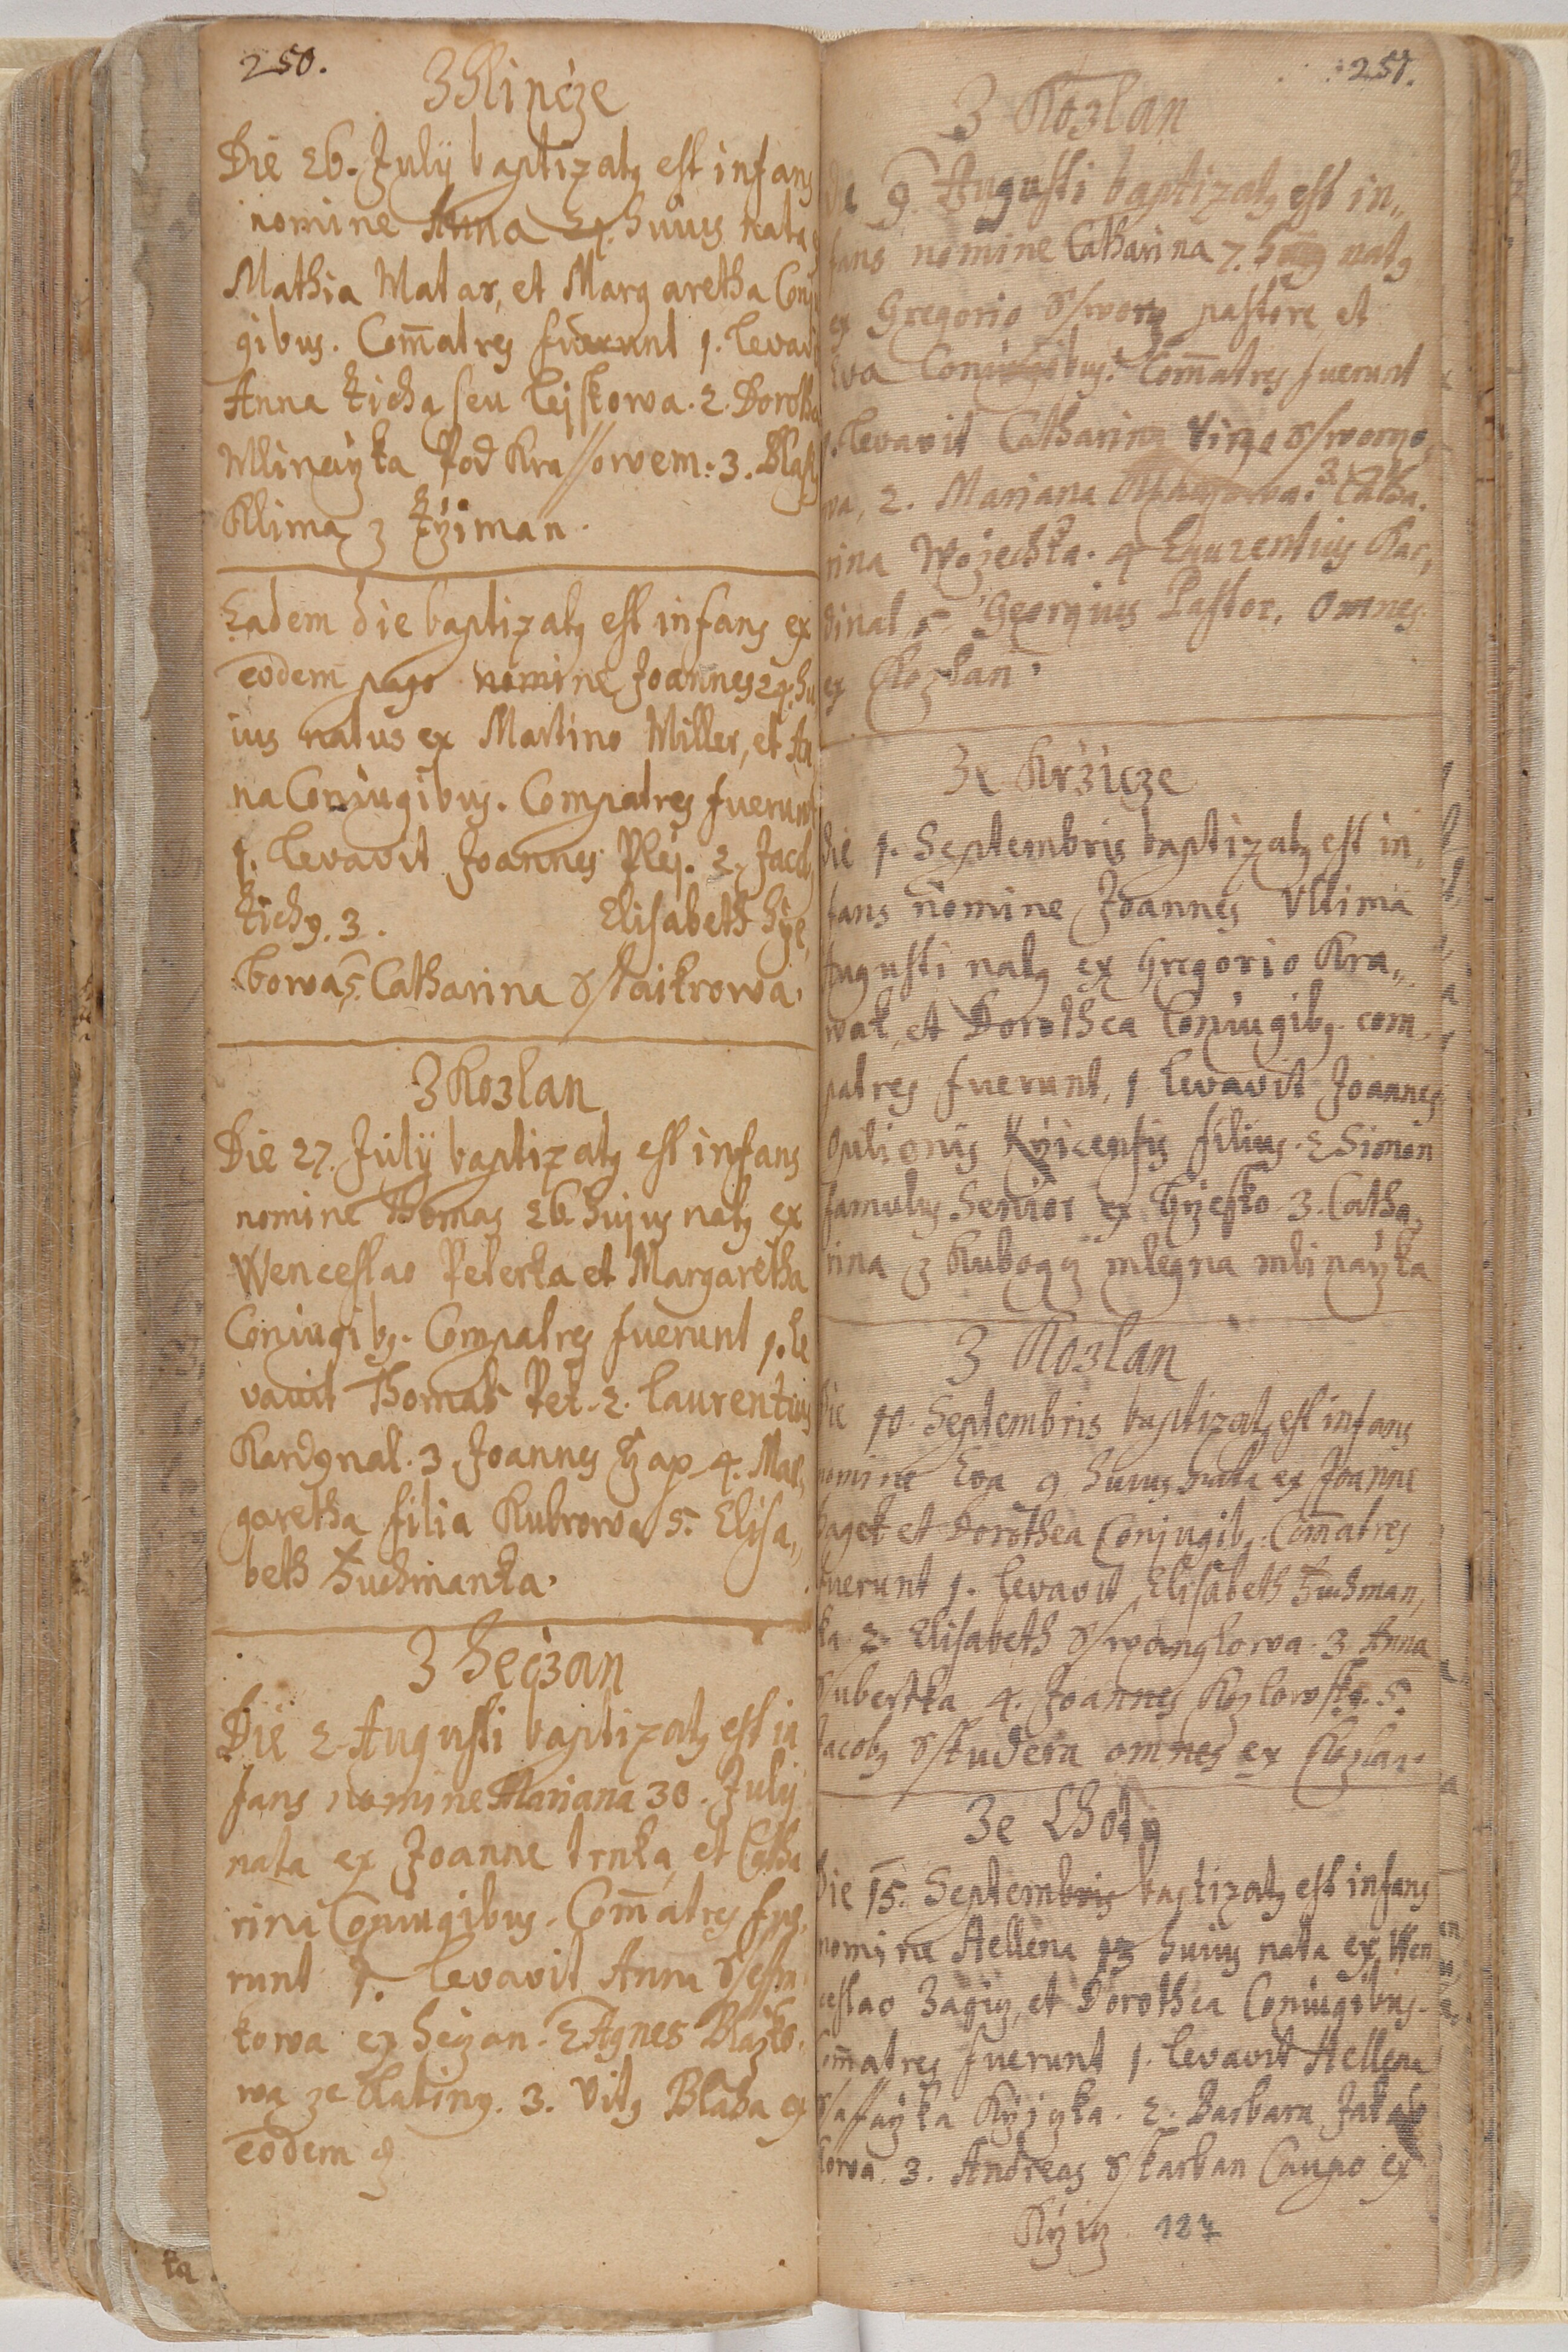 250.
Z Hlincze
Die 26. Julÿ baptizatꝫ est infans
nomine Anna 24. huius nata
Mathia Matas, et Margaretha Con
gibus. Com̄atres fuerunt 1. levavi
Anna Ticha seu Lejskowa. 2. Doroth
Mlinarzka Pod Krassowem. 3. Blas
Klima z
Eadem die baptizatꝫ est infans ex
eodem pago nomine Joannes 24. hu
ius natus ex Martino Miller, et An
na Coniugibus. Compatres fuerunt
1. levavit Joannes Plej. 2. Jacob
Tichy. 3. Elisabeth
bowa 5. Catharina
Z Kozlan
Die 27. Julÿ baptizatꝫ est infans
nomine Thomas 26 hujus natꝫ ex
Wenceslao Peterka et Margaretha
Coniugibꝫ. Compatres fuerunt 1. le
vavit Thomas Pet. 2. Laurentius
Kardynal. 3 Joannes 4. Mar
garetha filia Kubrowa 5. Elisa„
beth Suchmanka.
Z Heczan
Die 2. Augusti baptizatꝫ est in
fans nomine Mariana 30. Julÿ
nata ex Joanne Trnka, et Catha
rina Coniugibus. Com̄atres fue
runt 1. levavit Anna
kowa ex Heczan. 2 Agnes Blazko„
wa ze Slatiny. 3. Vitꝫ Blaha ex
eodem
251.
Z Kozlan
Die 9. Augusti baptizatꝫ est in„
fans nomine Catharina 7. natꝫ
ex Gregorio pastore et
Eva Coniugibus. Com̄atres fuerunt
1. levavit Catharina Virgo
wa, 2. Mariana 3. Catha„
rina Wojechka. 4 Laurentius Kar„
dinal 5. Georgius Pastor. Omnes
ex Kozlan.
Ze Krzicze
Die 1. Septembris baptizatꝫ est in„
fans nomine Joannes Ultima
Augusti natꝫ ex Gregorio Kra„
wal, et Dorothea Coniugibꝫ. com„
patres fuerunt, 1 levavit Joannes
Opilionis filius. 2 Simon
famulus Senior ex 3. Catha„
rina z mlegna mlinarzka
Z Kozlan
Die 10. Septembris baptizatꝫ est infans
nomine Eva 9 huius nata ex Joanne
et Dorothea Conjugibꝫ. Com̄atres
fuerunt 1. levavit Elisabeth Suchman„
ka. 2. Elisabeth 3 Anna
4. Joannes Kozlowsky. 5.
Jacobꝫ omnes ex Kozlan.
Ze Lhoty
Die 15. Septembris baptizatꝫ est infans
nomine Hellena 13 huius nata ex Wen
ceslao et Dorothea Coniugibus.
Com̄atres fuerunt 1. levavit Hellena
2. Barbara
3. Andreas Caupo ex
127